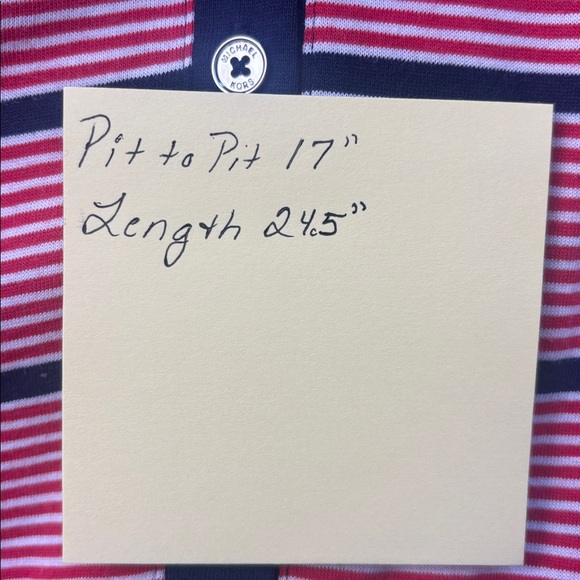 MICHAEL
KORS
Pit to Pit 17"
Length 24.5"